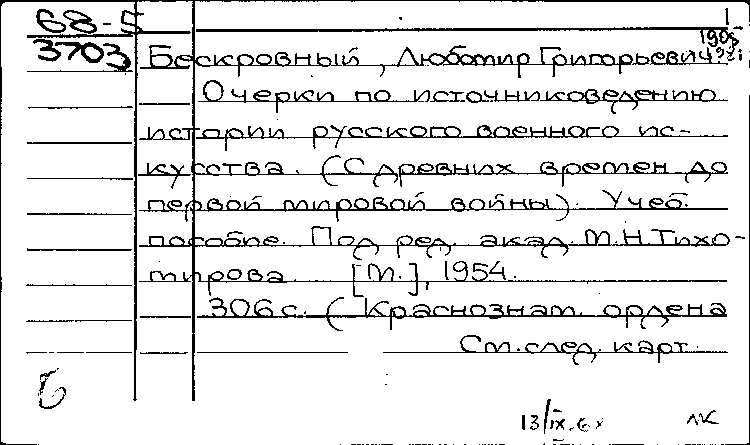 68-5
3703
1
Бескровный, Любомир Григорьевич
Очерки по источниковедению
истории русского военного ис-
кусства. (С древних времен до
первой мировой войны). Учеб.
пособие. Под ред. акад. М.Н. Тихо-
мирова. [М.], 1954.
306 с. (Краснознам. ордена
См. след. карт.